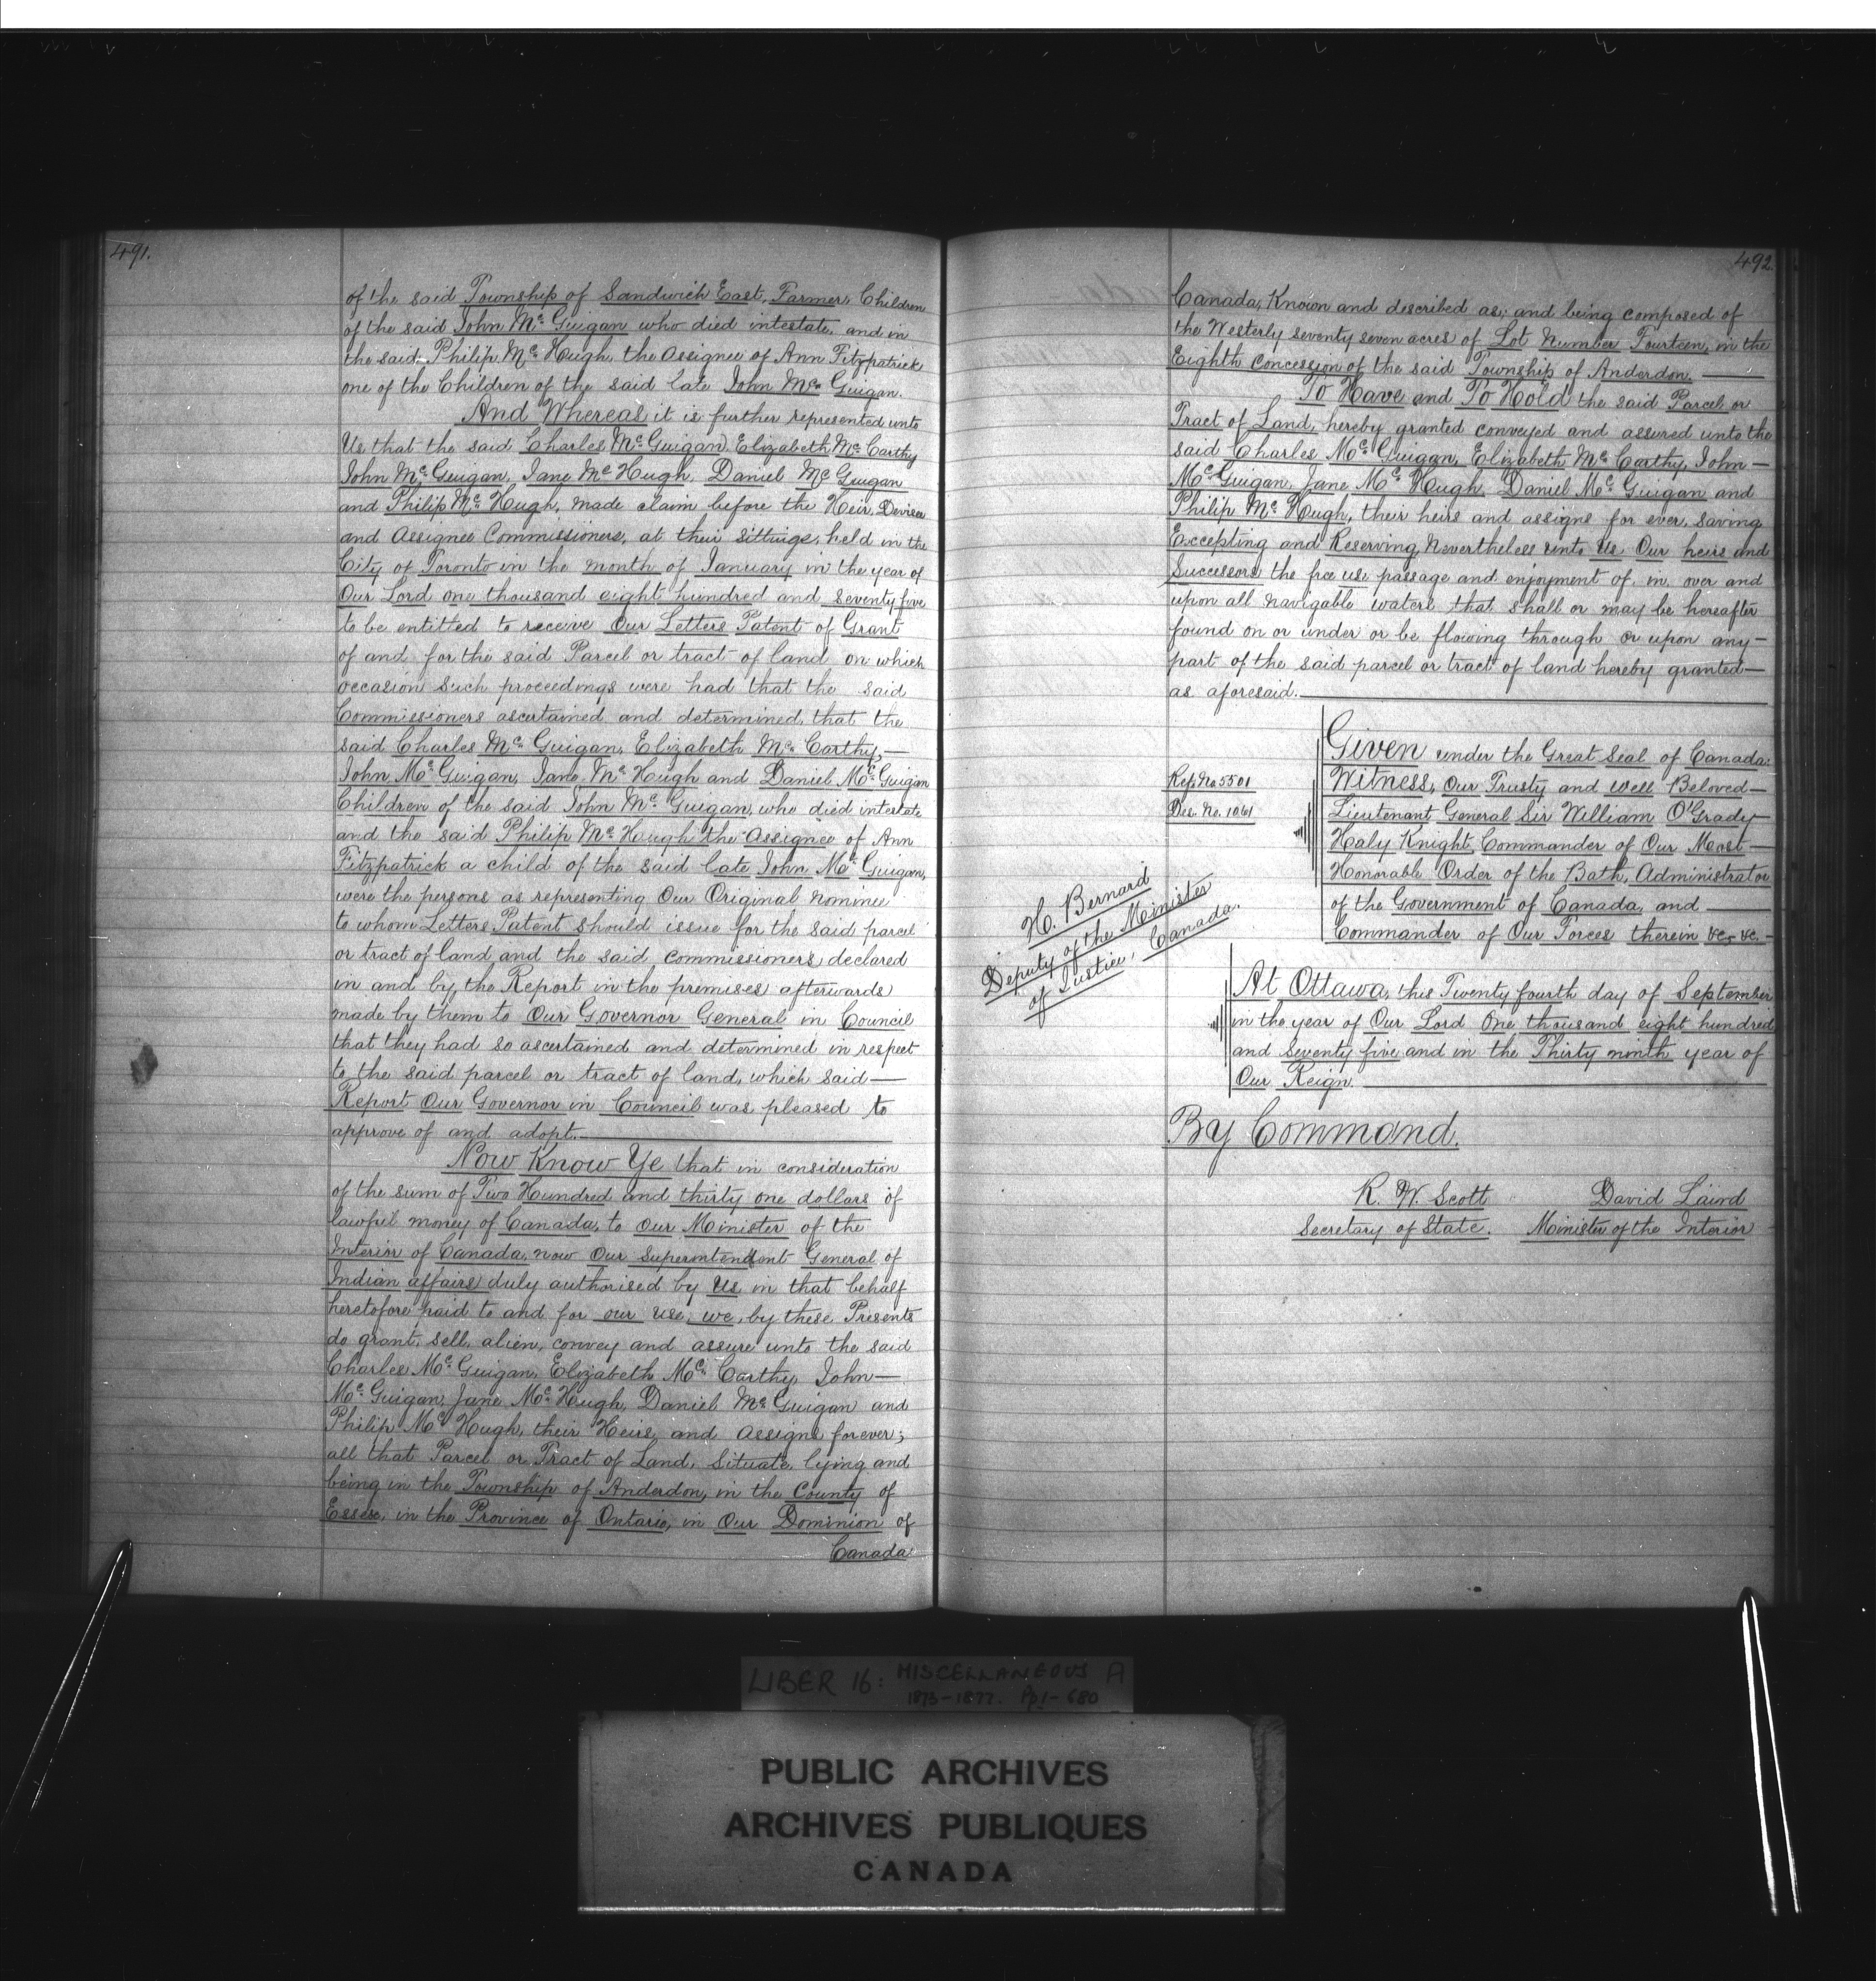 491.
of the said Township of Sandwich East, Farmer, Children
of the said John Mc Guigan who died intestate, and in
the said Philip Mc Hugh, the Assignee of Ann Fitzpatrick
one of the Children of the said late John Mc Guigan.
And Whereas it is further represented unto
Us that the said Charles Mc Guigan, Elizabeth Mc Carthy
John Mc Guigan, Jane Mc Hugh, Daniel Mc Guigan
and Philip Mc Hugh, made claim before the Heir, Devisee
and Assignee Commissioners, at their sittings, held in the
City of Toronto in the month of January in the year of
Our Lord one thousand eight hundred and seventy five
to be entitled to receive Our Letters Patent of Grant
of and for the said Parcel or tract of land on which
occasion such proceedings were had that the said
Commissioners ascertained and determined that the
said Charles Mc Guigan, Elizabeth Mc Carthy,—
John Mc Guigan, Jane Mc Hugh and Daniel Mc Guigan
Children of the said John Mc Guigan, who died intestate
and the said Philip Mc Hugh the Assignee of Ann
Fitzpatrick a child of the said late John Mc Guigan,
were the persons as representing Our Original nominee
to whom Letters Patent should issue for the said parcel
or tract of land, and the said Commissioners declared
in and by the Report in the premises afterwards
made by them to Our Governor General in Council
that they had so ascertained and determined in respect
to the said parcel or tract of land, which said—
Report Our Governor in Council was pleased to
approve of and adopt.
Now Know Ye that in consideration
of the sum of Two Hundred and thirty one dollars of
lawful money of Canada, to Our Minister of the
Interior of Canada, now Our Superintendent General of
Indian affairs duly authorised by Us in that behalf
heretofore paid to and for our use, we, by these Presents
do grant, sell, alien, convey and assure unto the said
Charles Mc Guigan, Elizabeth Mc Carthy, John—
Mc Guigan, Jane Mc Hugh, Daniel Mc Guigan and
Philip Mc Hugh, their Heirs, and assigns forever;
all that Parcel or Tract of Land, Situate, lying and
being in the Township of Anderdon, in the County of
Essex, in the Province of Ontario, in Our Dominion of
Canada
492.
Canada, Known and described as; and being composed of
the Westerly seventy seven acres of Lot Number Fourteen, in the
Eighth concession of the said Township of Anderdon.
To Have and To Hold the said Parcel or
Tract of Land, hereby granted conveyed and assured unto the
said Charles Mc Guigan, Elizabeth Mc Carthy, John—
Mc Guigan, Jane Mc Hugh, Daniel Mc Guigan and
Philip Mc Hugh, their heirs and assigns for ever, saving
Excepting and Reserving, Nevertheless unto Us, Our heirs and
Successors the free use, passage and enjoyment of, in, over and
upon all navigable waters that shall or may be hereafter
found on or under or be flowing through or upon any—
part of the said parcel or tract of land hereby granted—
as aforesaid.
Given under the Great Seal of Canada:
Witness, Our Trusty and Well Beloved—
Lieutenant General Sir William O'Grady—
Haly Knight, Commander of Our Most—
Honorable Order of the Bath, Administrator
of the Government of Canada, and
Commander of Our Forces therein &c, &c.—
Ref: No 5501
Des. No. 1061
H. Bernard
Deputy of the Minister
of Justice, Canada.
At Ottawa, this Twenty fourth day of September
in the year of Our Lord One thousand eight hundred
and seventy five and in the Thirty ninth year of
Our Reign.
By Command.
R. W. Scott
Secretary of State.
David Laird
Minister of the Interior
LIBER 16: MISCELLANEOUS A
1873-1877. Pp 1-680
PUBLIC ARCHIVES
ARCHIVES PUBLIQUES
CANADA